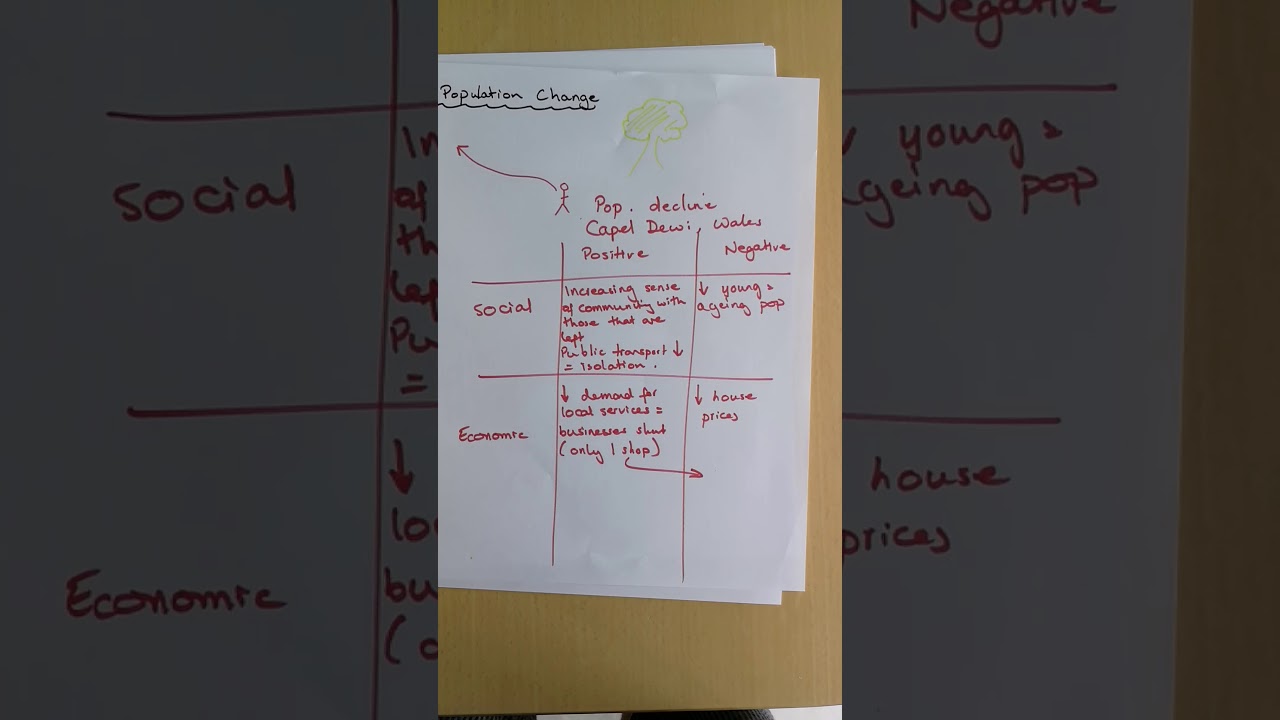 Population Change
Pop. decline
Capel Dewi, Wales
Positive
Negative
Social
Increasing sense
of community with
those that are
left
Public transport ↓
= isolation.
↓ young =
ageing pop
Economic
↓ demand for
local services =
businesses shut
(only 1 shop)
↓ house
prices